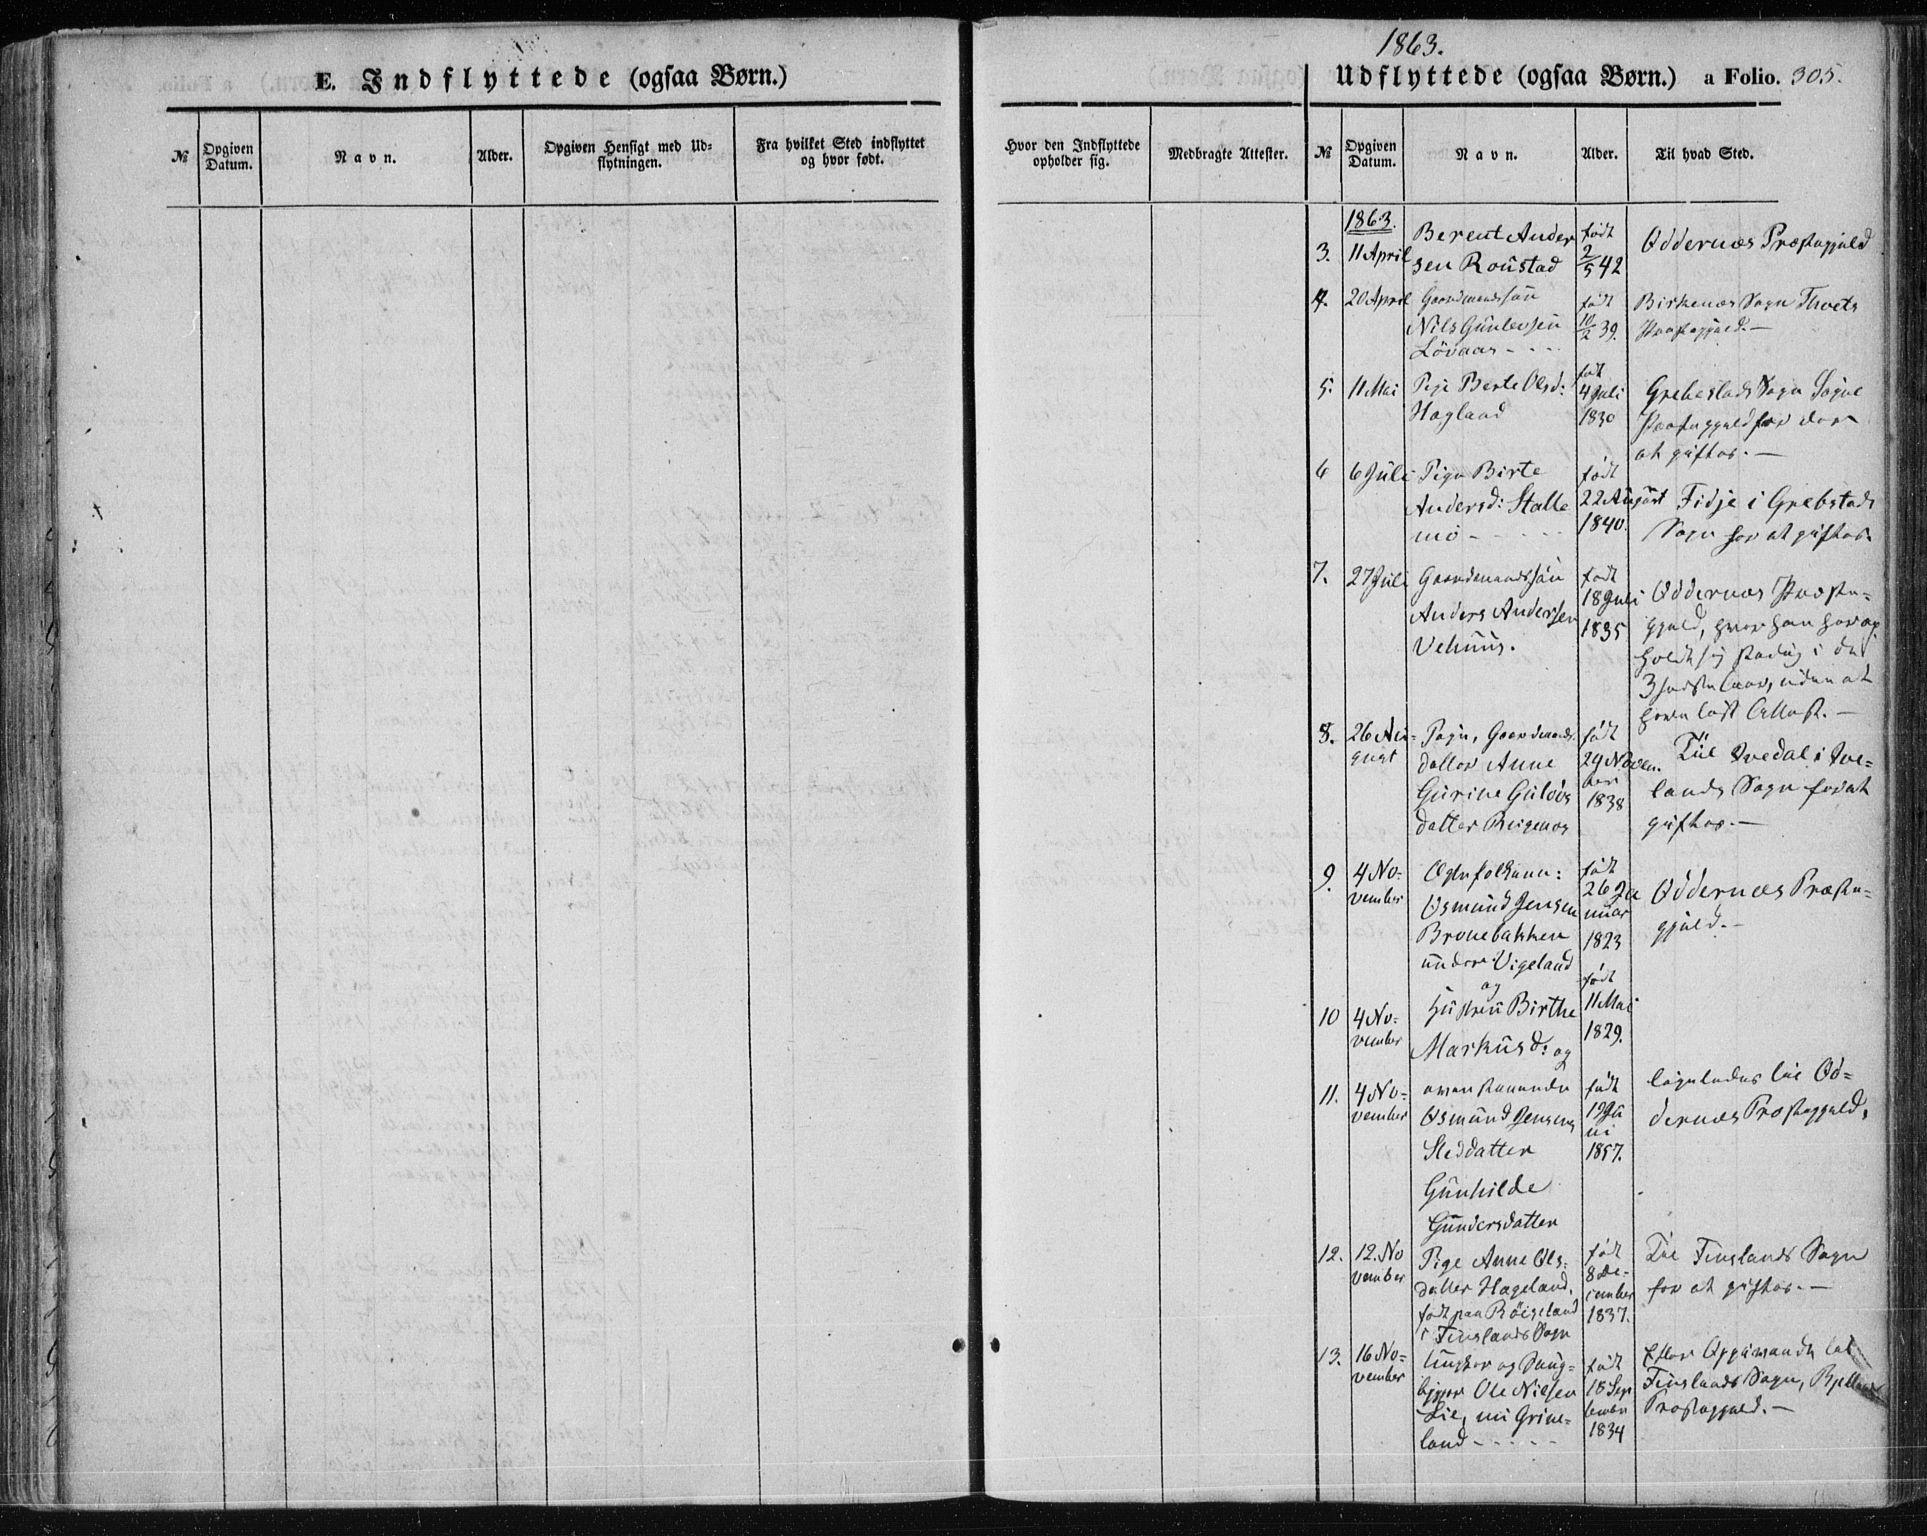 1863.
E. Indflyttede (ogsaa Børn.)
№
Opgiven Datum.
Navn.
Alder.
Opgiven Hensigt med Ud-
flytningen.
Fra hvilket Sted indflyttet
og hvor født.
Hvor den Indflyttede
opholder sig.
Medbragte Attester.
Udflyttede (ogsaa Børn.) a Folio. 305.
№
Opgiven Datum.
Navn.
Alder.
Til hvad Sted.
1863.
3. 11 April
Berent Ander
sen Roustad
født
2/5 42
Oddernæs Præstegjeld
4. 20 April
Gaardmandssøn
Nils Gunlevsen
Lövaas - - -
født
10/2 39.
Birkenæs Sogn Thvets
Præstegjeld. -
5. 11 Mai
Pige Berte Olsd:
Hagland
født
4 Juli
1830
Grebestads Sogn Sogne
Præstegjeld for der
at giftes. -
6 6 Juli
Pige Birte
Andersd: Stalle
mo - - - - -
født
22 August
1840.
Fidje i Grebstads
Sogn for at giftes.
7. 27 Juli
Gaardmandssøn
Anders Andersen
Vehuus.
født
18 Juli
1835
Oddernæs Præste-
gjeld, hvor han har op
holdt sig stadig i de
3 sidste Aar, uden at
have løst Attest. -
8. 26 Au-
gust
Pige, Gaardmands-
datter Anne
Gurine Gulovs
datter
født
29 Novem-
ber
1838
Til Tvedal i Tve-
lands Sogn for at
giftes. -
9. 4 No-
vember
Ægtefolkene:
Osmund Jensen
Bronebakken
under Vigeland
og
født
26 Ja
nuar
1823
Oddernæs Præste-
gjeld. -
10 4 No-
vember
Hustru Birthe
Markusd: og
født
11 Mai
1829.
11. 4 No-
vember
ovenstaaende
Osmund Jensens
Steddatter
Gunhilde
Gundersdatter
født
19 Ju
ni
1857.
ligeledes til Od-
dernæs Præstegjeld.
12. 12. No
vember
Pige Anne Ols-
datter Hageland,
født paa Röigeland
i Finslands Sogn
født
8 De-
cember
1837.
Til Finslands Sogn
for at giftes. -
13. 16 No-
vember
Ungkar og
Ole Nilsen
Lie, nu Grine-
land - - - - -
født
15 Sep
tember
1834
Efter Opgivende til
Finslands Sogn, Bjellands
Præstegjeld. -